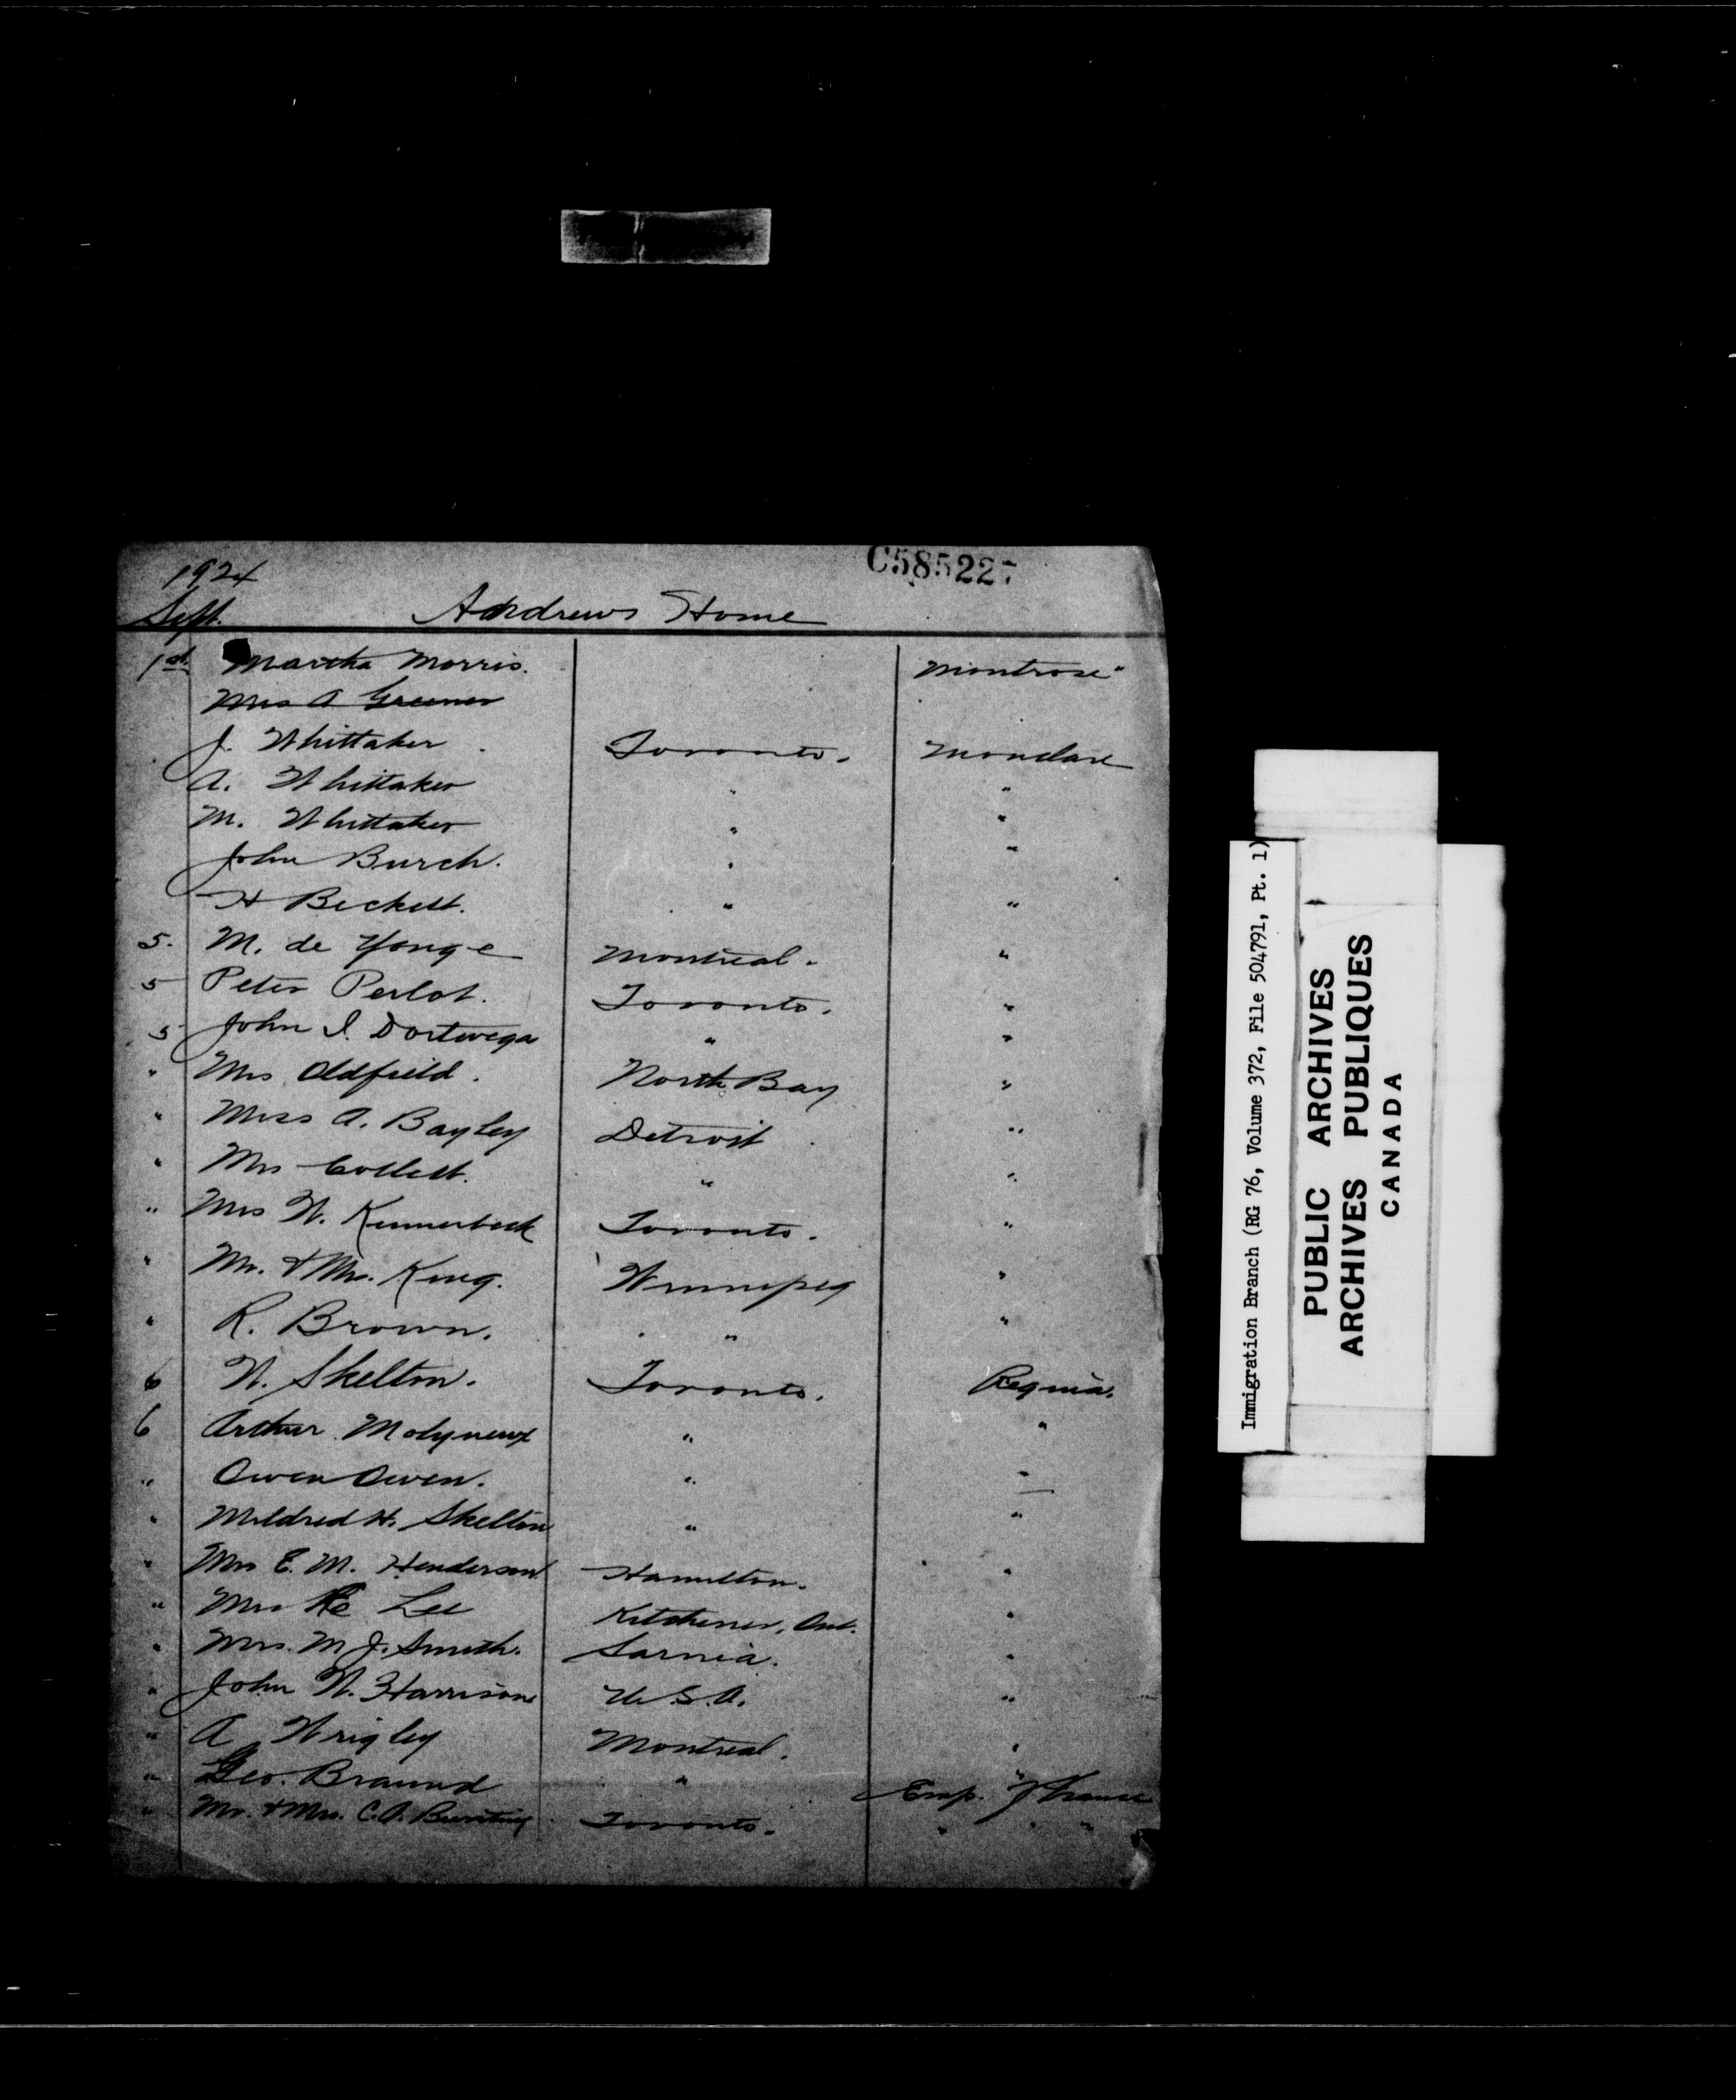 C585227
1924
Sept. Andrews Home
1st Martha Morris. Montrose"
Mrs A Greener
J. Whittaker. Toronto. Monclare
A. Whittaker " "
M. Whittaker " "
John Burch. " "
H Beckett. " "
5. M. de Yonge Montreal. "
5 Peter Perlot. Toronto. "
5 John I. " "
" Mrs Oldfield. North Bay "
" Miss A. Bayley Detroit "
" Mrs Collett. " "
" Mrs W. Toronto. "
" Mr. & Mrs. King. Winnipeg "
" R. Brown. " "
6 W. Skelton. Toronto. Regina.
6 Arthur Molyneux " "
" Owen Owen. " "
" Mildred H. Skelton " "
" Mrs E. M. Henderson Hamilton. "
" Mrs Lee Kitchener, Ont. "
" Mrs. M J. Smith. Sarnia. "
" John W. Harrison U.S.A. "
" A Wrigley Montreal. "
" Geo. Braund " Emp. France
" Mr. & Mrs. C.A. Bunting Toronto. " " "
Immigration Branch (RG 76, Volume 372, File 504791, Pt. 1)
PUBLIC ARCHIVES
ARCHIVES PUBLIQUES
CANADA